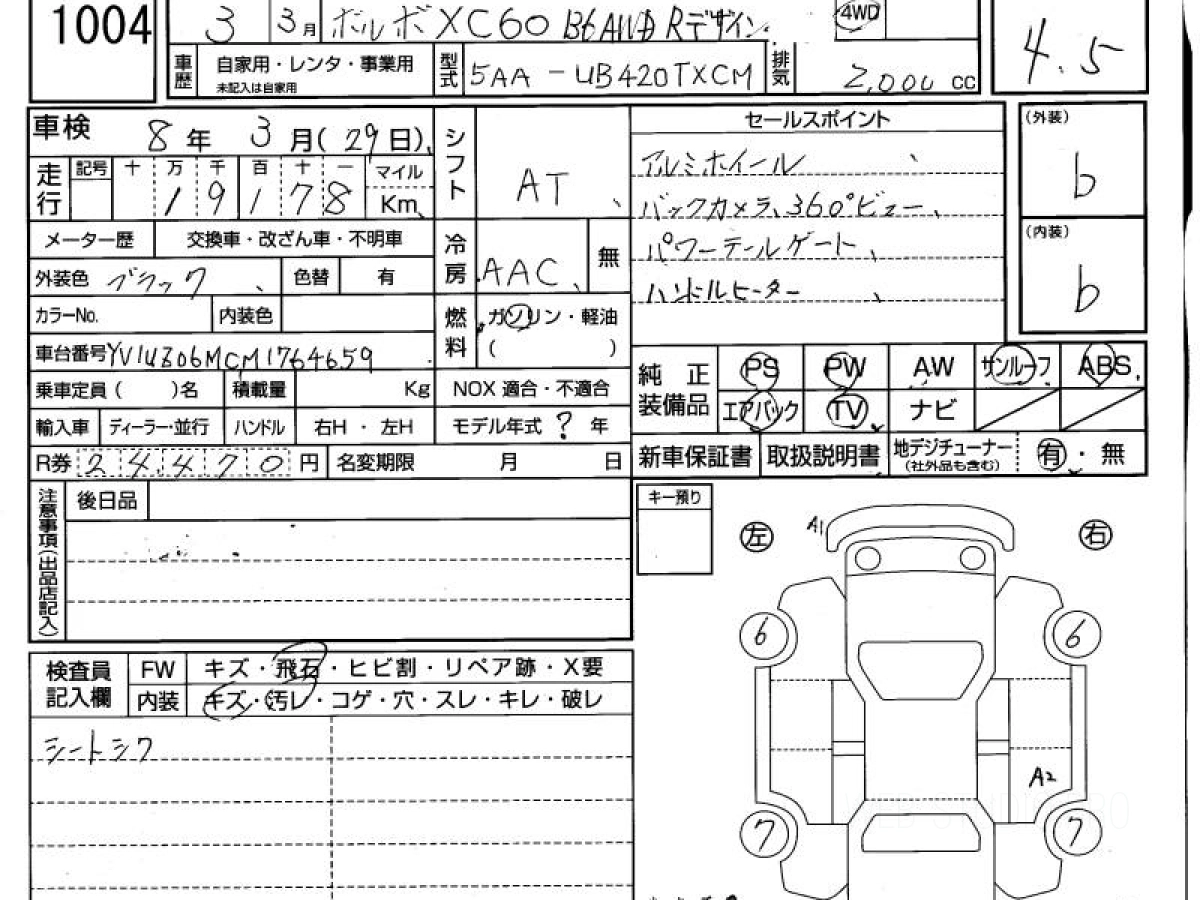 1004
3 3月 ボルボXC60 B6AWD Rデザイン 4WD
車歴 自家用・レンタ・事業用
未記入は自家用
型式 5AA-UB420TXCM 排気 2,000 CC
4.5
車検 8年 3月(29日)
シフト AT
走行 記号 十 万 千 百 十 一 マイル
1 9 1 7 8 Km
メーター歴 交換車・改ざん車・不明車
冷房 AAC 無
外装色 ブラック 色替 有
カラーNo. 内装色
燃料 ガソリン・軽油
( )
車台番号 YV1UZ06MCM1764659
乗車定員( )名 積載量 Kg NOX 適合・不適合
輸入車 ディーラー・並行 ハンドル 右H・左H モデル年式 ? 年
R券 24,470 円 名変期限 月 日
セールスポイント
アルミホイール、
バックカメラ、360°ビュー、
パワーテールゲート、
ハンドルヒーター、
(外装)
b
(内装)
b
純正装備品 PS PW AW サンルーフ ABS
エアバック TV ナビ
新車保証書 取扱説明書 地デジチューナー
(社外品も含む)
有・無
注意事項(出品店記入)
後日品
キー預り
左 A1 右
6 6
A2
7 7
検査員記入欄
FW キズ・飛石・ヒビ割・リペア跡・X要
内装 キズ・汚レ・コゲ・穴・スレ・キレ・破レ
シートシワ